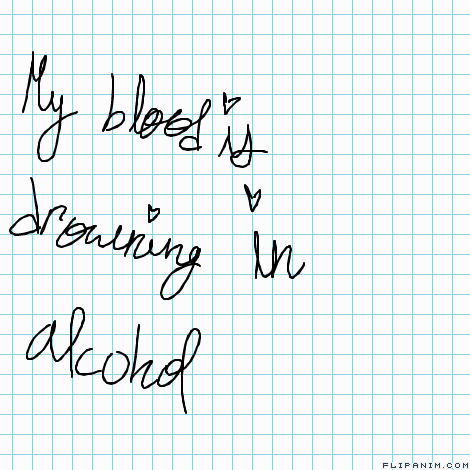 My blood is
drowning in
alcohol
FLIPANIM.COM